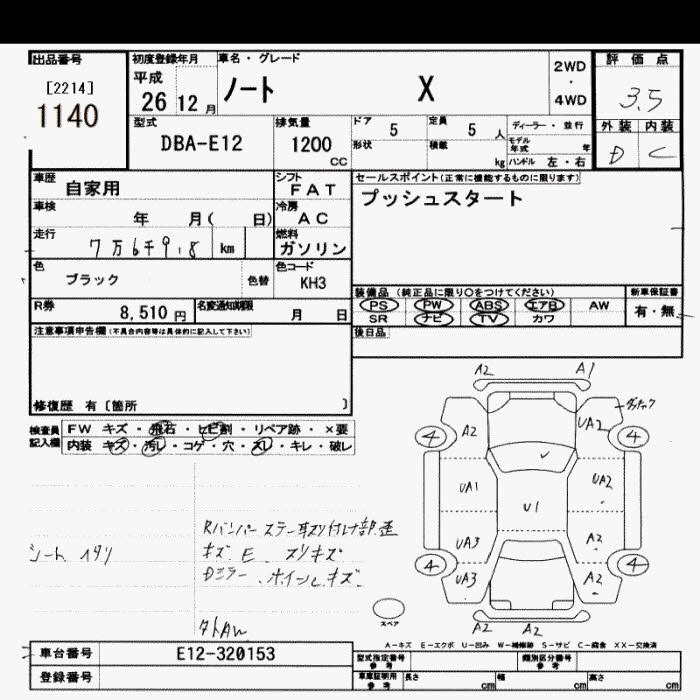 出品番号 初度登録年月 車名・グレード 2WD・4WD 評価点
[2214] 平成 ノート X 3.5
1140 26 12月 外装 内装
型式 DBA-E12 排気量 1200 CC ドア 5 定員 5人 ディーラー・並行 D C
形状 積載 kg モデル年式 年 ハンドル 左・右
車歴 自家用 シフト FAT セールスポイント(正常に機能するものに限ります)
車検 年 月( 日) 冷房 AC プッシュスタート
走行 7万6千9.8 km 燃料 ガソリン
色 ブラック 色替 色コード KH3
装備品(純正品に限り○をつけてください) 新車保証書
R券 8,510円 名変通知期限 月 日 PS PW ABS エアB AW 有・無
SR ナビ TV カワ
注意事項申告欄(不具合内容等は具体的に記入して下さい) 後日品
修復歴 有〔箇所 〕
検査員記入欄 FW キズ・飛石・ヒビ割・リペア跡・×要
内装 キズ・汚レ・コゲ・穴・スレ・キレ・破レ
A2 A1
A2 UA2
4 4
UA1 U1 UA2
UA3 A2
4 4
UA3 A2
A2 A2
キズ E スリキズ
Dミラー、ホイールキズ
スペア
A-キズ E-エクボ U-凹み W-補修跡 S-サビ C-腐食 XX-交換済
車台番号 E12-320153 型式指定番号 参考 類別区分番号 参考
登録番号 車庫証明用 参考 長さ cm 幅 cm 高さ cm